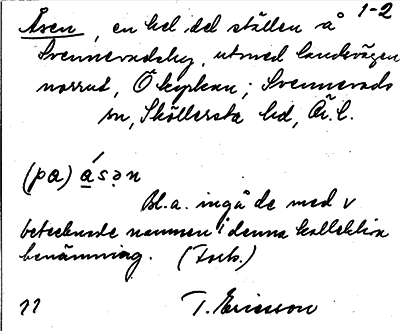 1-2
Åsen, en hel del ställen å
Svennevadsby, utmed landsvägen
norrut, Ö kyrkan; Svennevads
sn, Sköllersta hd, Ö.l.
(pa) ásən
Bl.a. ingå de med v
betecknade namnen i denna kollektiva
benämning. (Forts.)
T. Ericsson